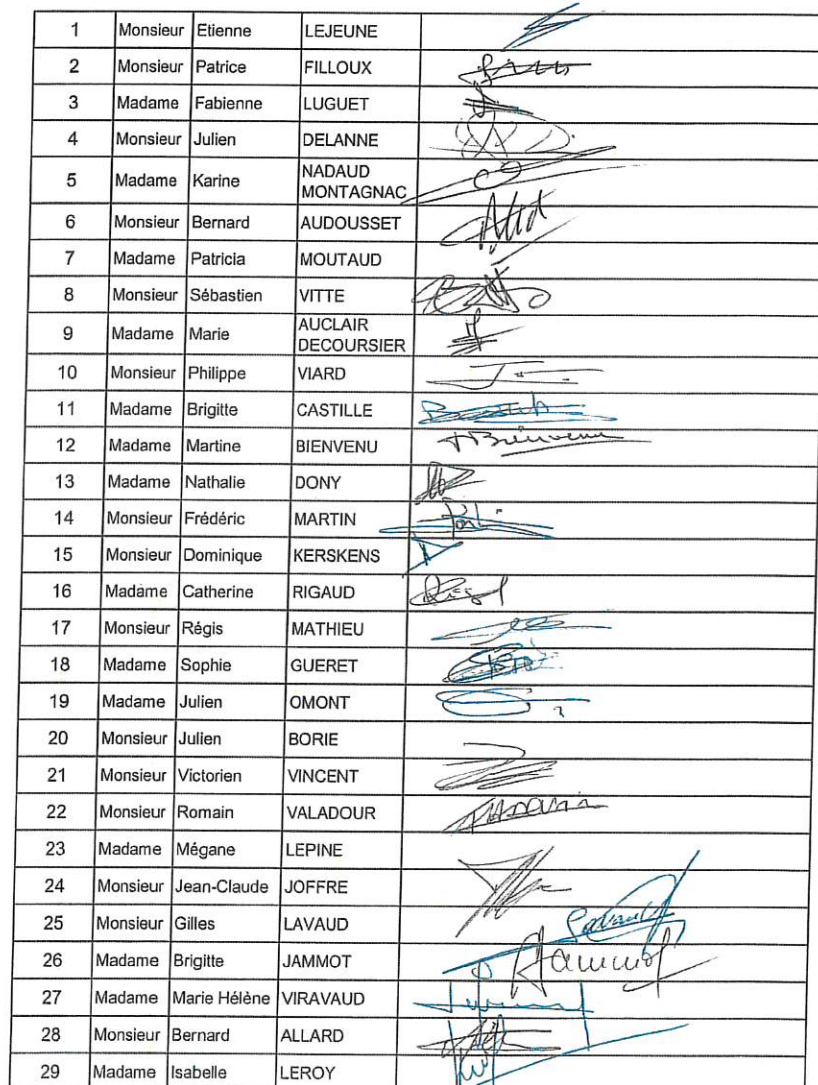 1 Monsieur Etienne LEJEUNE
2 Monsieur Patrice FILLOUX
3 Madame Fabienne LUGUET
4 Monsieur Julien DELANNE
5 Madame Karine NADAUD
MONTAGNAC
6 Monsieur Bernard AUDOUSSET
7 Madame Patricia MOUTAUD
8 Monsieur Sébastien VITTE
9 Madame Marie AUCLAIR
DECOURSIER
10 Monsieur Philippe VIARD
11 Madame Brigitte CASTILLE
12 Madame Martine BIENVENU Bienvenu
13 Madame Nathalie DONY
14 Monsieur Frédéric MARTIN
15 Monsieur Dominique KERSKENS
16 Madame Catherine RIGAUD
17 Monsieur Régis MATHIEU
18 Madame Sophie GUERET
19 Madame Julien OMONT
20 Monsieur Julien BORIE
21 Monsieur Victorien VINCENT
22 Monsieur Romain VALADOUR
23 Madame Mégane LEPINE
24 Monsieur Jean-Claude JOFFRE
25 Monsieur Gilles LAVAUD Lavaud
26 Madame Brigitte JAMMOT Jammot
27 Madame Marie Hélène VIRAVAUD
28 Monsieur Bernard ALLARD
29 Madame Isabelle LEROY